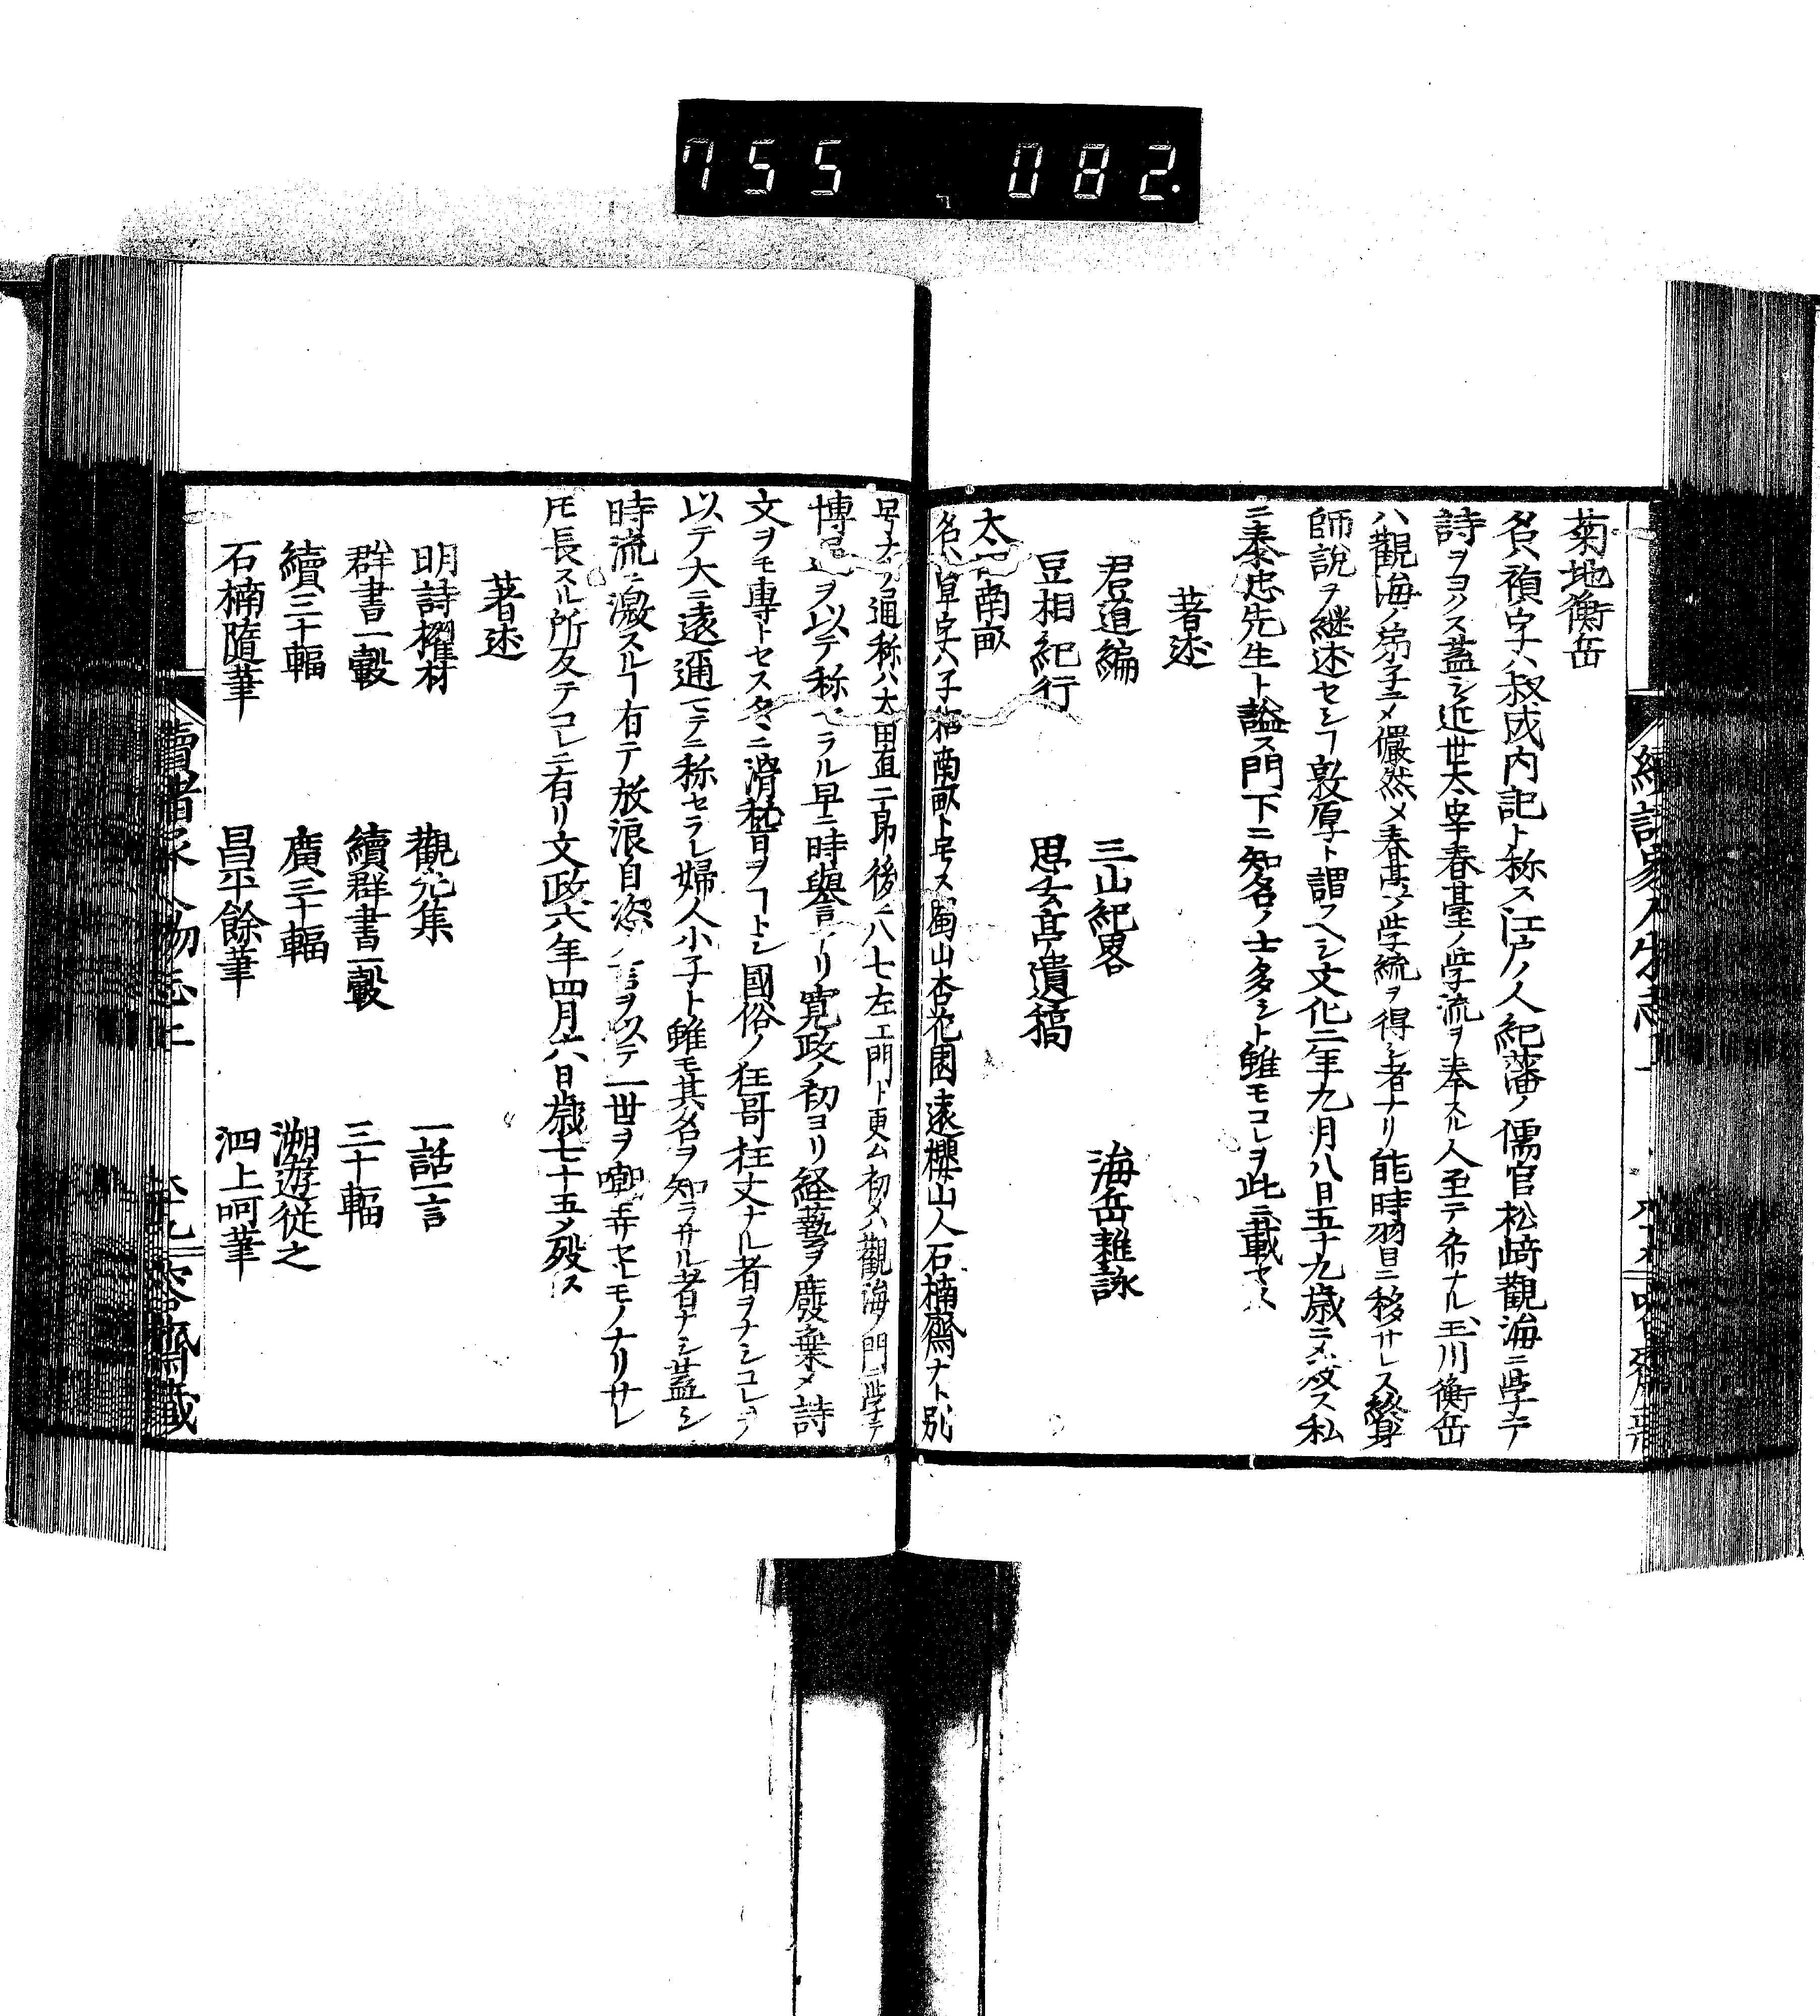 755 082
菊地衡岳
名ハ禎字ハ叔成内記ト称ス江戸ノ人紀藩ノ儒官松﨑觀海ニ学テ
詩ヲヨクス蓋シ近世太宰春臺ノ学流ヲ奉スル人至テ希ナル玉川衡岳
ハ觀海ノ弟子ニメ儼然メ春臺ノ学統ヲ得シ者ナリ能時習ニ移サレス終身
師説ヲ継述セシヿ敦厚ト謂フヘシ文化二年九月八日五十九歳ニメ歿ス私
ニ泰忠先生ト謚ス門下ニ知名ノ士多シト雖モコレヲ此ニ載セス
著述
君道編 三山紀畧 海岳雜詠
豆相紀行 思玄亭遺稿
太田南畝
名ハ覃字ハ子耜南畝ト号ス蜀山杏花園遠櫻山人石楠齋ナト別
号ナリ通称ハ太田直二郎後ニ八七左エ門ト更ム初メハ觀海ノ門ニ学テ
博ヲ以テ称セラル早ニ時譽アリ寛政ノ初ヨリ経藝ヲ廢棄メ詩
文ヲモ專トセスタヽニ滑稽ヲヿトシ國俗ノ狂哥狂文ナル者ヲナシコレヲ
以テ大ニ遠邇ニ称セラレ婦人小子ト雖モ其名ヲ知ラサル者ナシ蓋シ
時流ニ激スルヿ有テ放浪自恣ノ言ヲ以テ一世ヲ嘲弄セシモノナリサレ
𪜈長スル所及テコレニ有リ文政六年四月六日歳七十五ノ歿ス
著述
明詩擢材 觀光集 一話一言
群書一轂 續群書一轂 三十輻
續三十輻 廣三十輻 溯遊従之
石楠隨筆 昌平餘筆 泗上呵筆